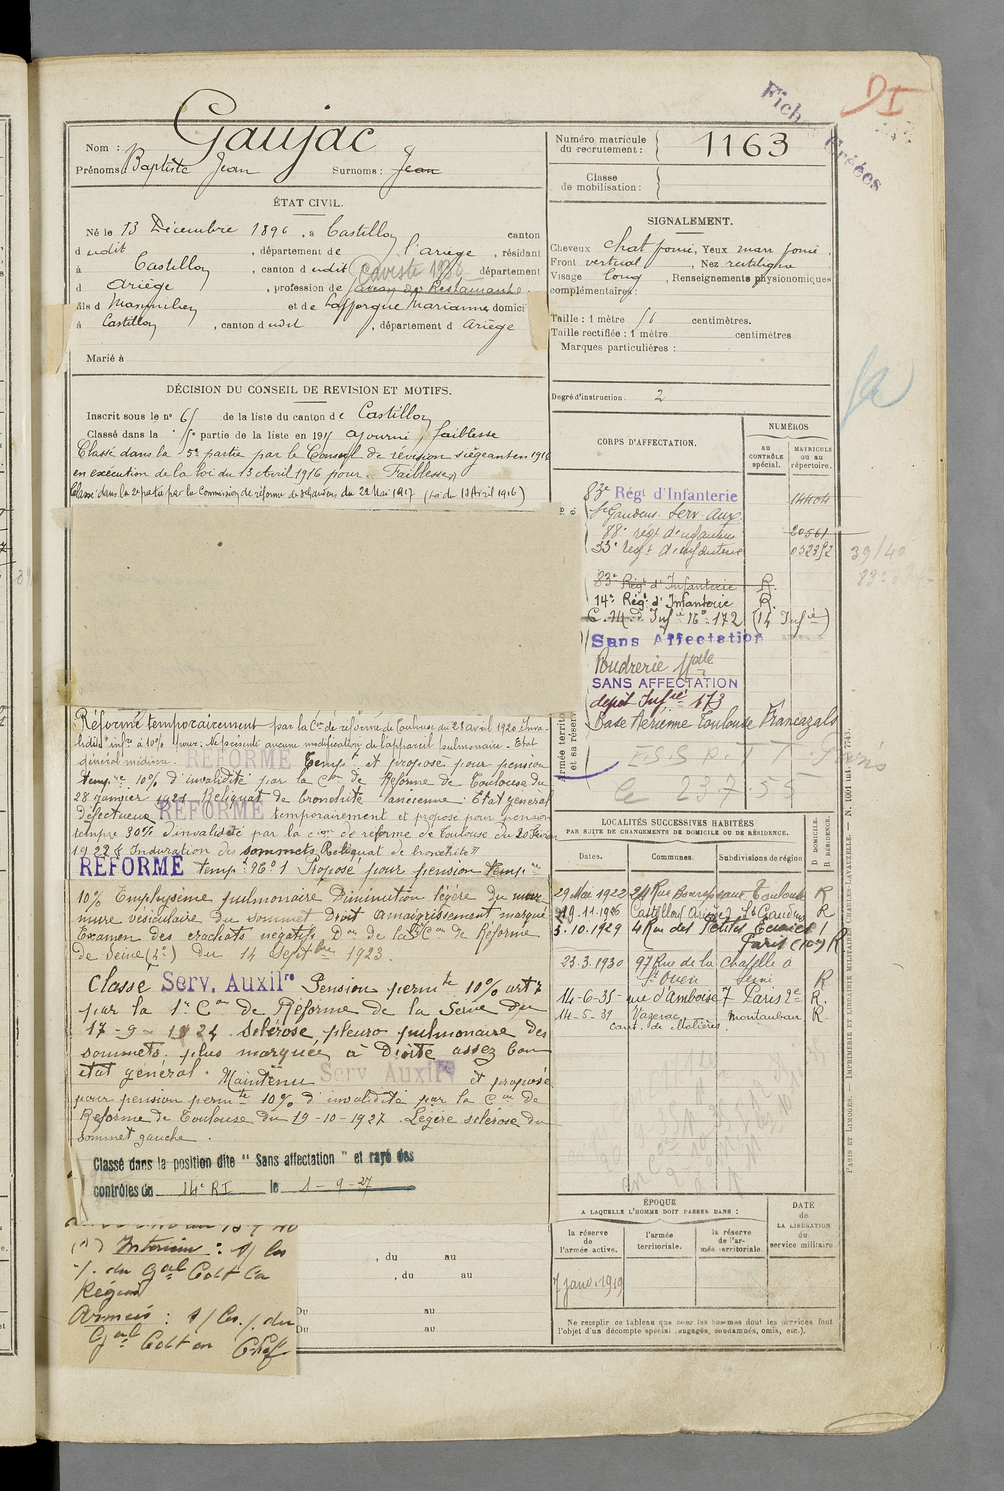 Fiches Créées
DI
Nom : Gaujac
Prénoms : Baptiste Jean Surnoms : Jean
Numéro matricule du recrutement : 1163
Classe de mobilisation :
ÉTAT CIVIL.
Né le 13 Décembre 1896, à Castillon canton
dudit, département de l'ariège, résidant
à Castillon, canton dudit département
Caviste 1936
d Ariège, profession de Restaurant
fils d Maximilien et de Lafforgue Marianne domicil
à Castillon, canton dudit, département d Ariège
Marié à
SIGNALEMENT.
Cheveux chat foncé, Yeux marr foncé,
Front vertical, Nez rectiligne
Visage long, Renseignements physionomiques
complémentaires :
Taille : 1 mètre 56 centimètres.
Taille rectifiée : 1 mètre centimètres
Marques particulières :
Degré d'instruction : 2
DÉCISION DU CONSEIL DE REVISION ET MOTIFS.
Inscrit sous le n° 65 de la liste du canton de Castillon
Classé dans la 5e partie de la liste en 1915 ajourné, faiblesse
Classé dans la 5e partie par le Conseil de révision siégeant en 1916
en exécution de la loi du 13 Avril 1916 pour "Faiblesse"
Classé dans la 2e partie par la Commission de réforme de St Gaudens du 22 Mai 1917 (Loi du 13 Avril 1916)
Réformé temporairement par la Con de réforme de Toulouse du 21 avril 1920 Inva-
lidité infre à 10% pour : Ne présente aucune modification de l'appareil pulmonaire. Etat
général médiocre. RÉFORMÉ Tempt et proposé pour pension
tempre 10% d'invalidité par la Con de Réforme de Toulouse du
28 Janvier 1921 Reliquat de bronchite ancienne. Etat général
défectueux RÉFORMÉ temporairement et proposé pour pension
tempre 30% d'invalidité par la con de réforme de Toulouse du 20 Février
1922 Induration des sommets Reliquat de bronchite "
RÉFORMÉ tempt n° 1 Proposé pour pension tempre
10% Emphysème pulmonaire Diminution légère du mur
mure vésiculaire du sommet droit amaigrissement marqué
Examen des crachats négatifs Don de la Con de Réforme
de Seine (2e) du 14 Septbre 1923.
Classé Serv. Auxilre Pension permte 10% art 7
par la 1e Con de Réforme de la Seine du
17-9-1924 Sclérose pleuro pulmonaire des
sommets, plus marquée à Droite assez bon
état général. Maintenu Serv Auxilre et proposé
pour pension permte 10% d'invalidité par la Con de
Réforme de Toulouse du 19-10-1927. Légère sclérose du
sommet gauche.
Classé dans la position dite " Sans affectation " et rayé des
contrôles du 14e RI le 1-9-27
Interieur :
du Gal Cdt la
Région
Armées :
Gal Cdt en Chef
, du au
, du au
Du au
Du au
CORPS D'AFFECTATION.
NUMÉROS
AU CONTRÔLE spécial.
MATRICULE ou au répertoire.
83e Régt d'Infanterie
St Gaudens Serv. Aux.
88e régt d'infanterie 20561
33e régt d'infanterie
83e Régt d'Infanterie R.
14e Régt d'Infanterie R.
C.M. d'Infie N° 172 (14 Infie)
Sans Affectation
Poudrerie
SANS AFFECTATION
dépôt Infie 173
Base Aérienne Toulouse Francazals
39/40
E.S.S P.T.T. Paris
le 23.7.55
LOCALITÉS SUCCESSIVES HABITÉES
PAR SUITE DE CHANGEMENTS DE DOMICILE OU DE RÉSIDENCE.
D. DOMICILE. R. RÉSIDENCE.
Dates. Communes. Subdivisions de région
29 Mai 1922 24 Rue Toulouse R
19.11.1926 Castillon (Ariège) St Gaudens R
5.10.1929 4 Rue des Petites Ecuries
Paris (10e) R
23.3.1930 97 Rue de la Chapelle à
St Ouen Seine R
14-6-35 rue d'Amboise 7 Paris 2e R.
14-5-39 Vazerac Montauban R.
cant. de Molières
ÉPOQUE
A LAQUELLE L'HOMME DOIT PASSER DANS :
la réserve de l'armée active.
l'armée territoriale.
la réserve de l'armée territoriale.
DATE de LA LIBÉRATION du service militaire
7 janv. 1919
Ne remplir ce tableau que pour les hommes dont les services font
l'objet d'un décompte spécial (engagés, condamnés, omis, etc.).
PARIS ET LIMOGES. — IMPRIMERIE ET LIBRAIRIE MILITAIRE CHARLES-LAVAUZELLE. — N. 1001